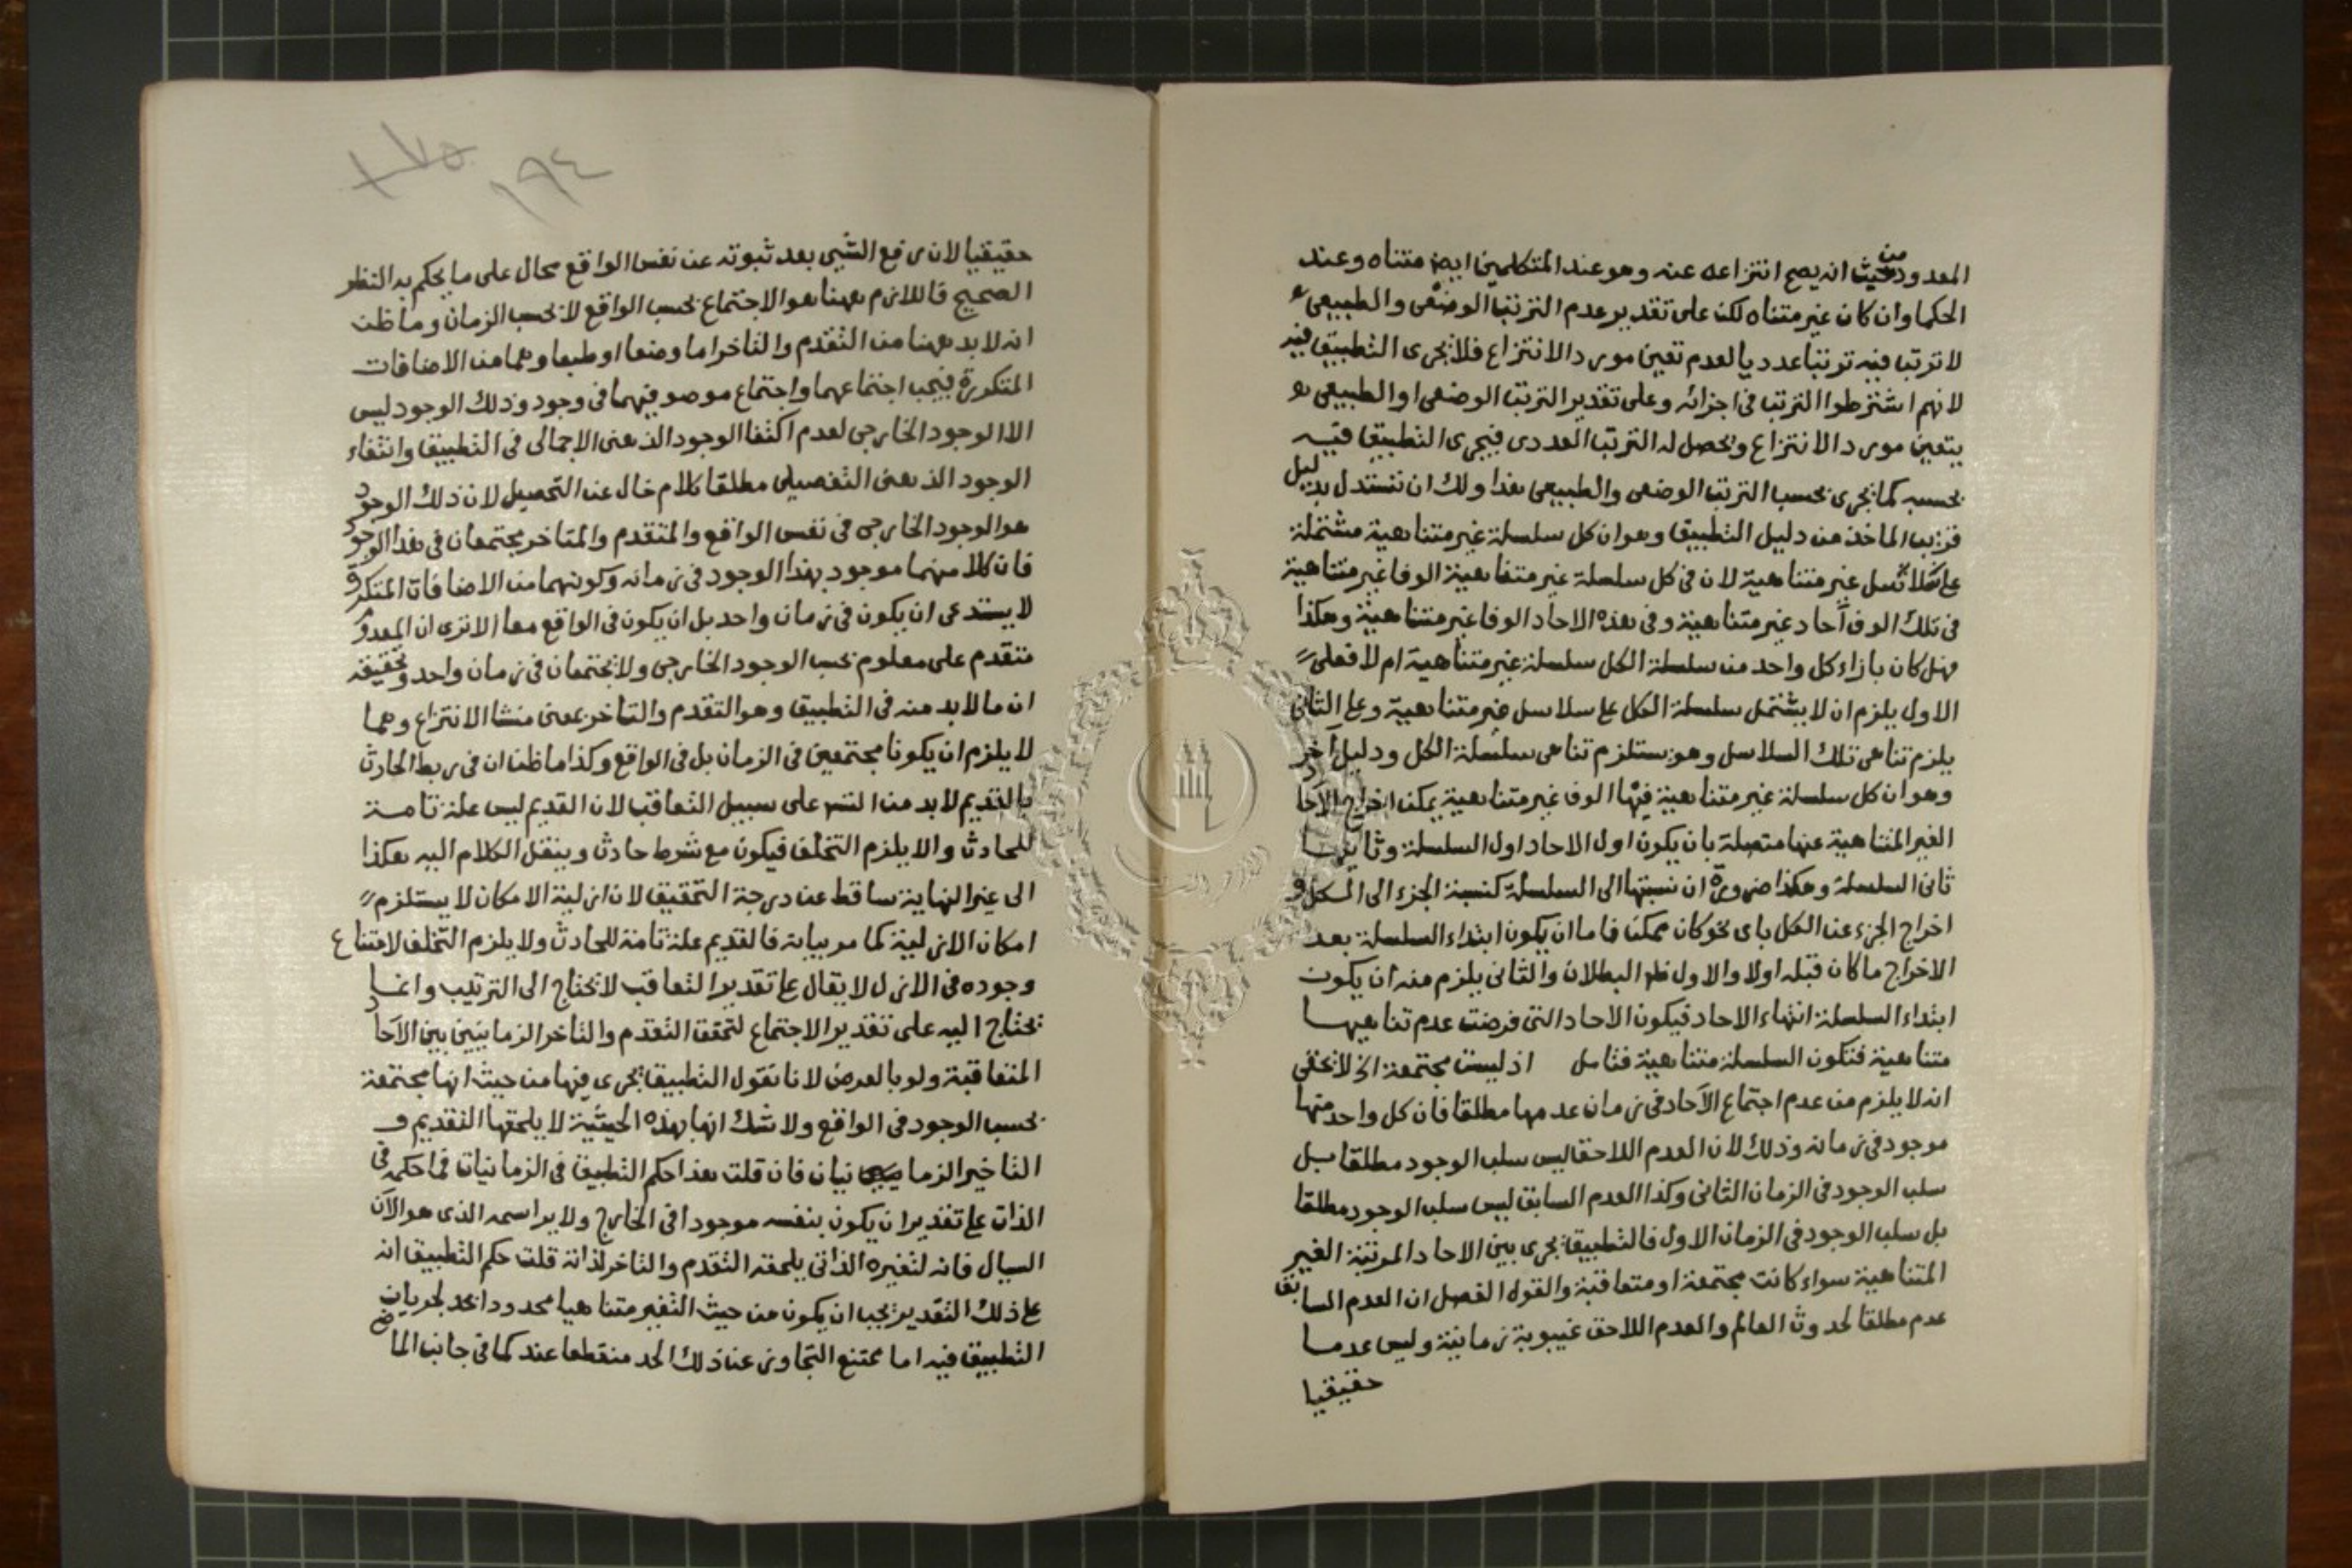 المعدود من حيث انه يصح انتزاعه عنه وهو عند المتكلمين ايضا متناه وعند
الحكما وان كان غير متناه لكن على تقدير عدم الترتب الوضعى والطبيعى
لا ترتب فيه ترتبا عدديا لعدم تعين مورد الانتزاع فلا يجرى التطبيق فيه
لانهم اشترطوا الترتب فى اجزائه وعلى تقدير الترتب الوضعى او الطبيعى
يتعين مورد الانتزاع ويحصل له الترتب العددى فيجرى التطبيق فيه
بحسبه كما يجرى بحسب الترتب الوضعى والطبيعى هذا ولك ان تستدل بدليل
قريب الماخذ من دليل التطبيق وهو ان كل سلسلة غير متناهية مشتملة
على سلاسل غير متناهية لان فى كل سلسلة غير متناهية الوفا غير متناهية
فى تلك الوف آحاد غير متناهية وفى هذه الاحاد الوفا غير متناهية وهكذا
فهل كان بازاء كل واحد من سلسلة الكل سلسلة غير متناهية ام لا فعلى
الاول يلزم ان لا يشتمل سلسلة الكل على سلاسل غير متناهية وعلى الثانى
يلزم تناهى تلك السلاسل وهو يستلزم تناهى سلسلة الكل ودليل آخر
وهو ان كل سلسلة غير متناهية فيها الوف غير متناهية يمكن اخراج الآحاد
الغير المتناهية عنها متصلة بان يكون اول الاحاد اول السلسلة وثانيها
ثانى السلسلة وهكذا ضرورة ان نسبتها الى السلسلة كنسبة الجزء الى الكل و
اخراج الجزء عن الكل باى نحو كان ممكن فاما ان يكون ابتداء السلسلة بعد
الاخراج ما كان قبله اولا والاول ظ البطلان والثانى يلزم منه ان يكون
ابتداء السلسلة انتهاء الاحاد فيكون الاحاد التى فرضت عدم تناهيها
متناهية فتكون السلسلة متناهية فتامل اذ ليست مجتمعة الخ لا يخفى
انه لا يلزم من عدم اجتماع الآحاد فى زمان عدمها مطلقا فان كل واحد منها
موجود فى زمانه وذلك لان العدم اللاحق ليس سلب الوجود مطلقا بل
سلب الوجود فى الزمان الثانى وكذا العدم السابق ليس سلب الوجود مطلقا
بل سلب الوجود فى الزمان الاول فالتطبيق يجرى بين الاحاد المرتبة الغير
المتناهية سواء كانت مجتمعة او متعاقبة والقول الفصل ان العدم السابق
عدم مطلقا لحدوث العالم والعدم اللاحق غيبوبة زمانية وليس عدما
حقيقيا
١٧٥
١٩٤
حقيقيا لان رفع الشيى بعد ثبوته عن نفس الواقع محال على ما يحكم به النظر
الصحيح فاللازم ههنا هو الاجتماع بحسب الواقع لا بحسب الزمان وما ظن
انه لا بد ههنا من التقدم والتاخر اما وضعا او طبعا وهما من الاضافات
المتكررة فيجب اجتماعهما واجتماع موصوفيهما فى وجود وذلك الوجود ليس
الا الوجود الخارجى لعدم اكتفا الوجود الذهنى الاجمالى فى التطبيق وانتفاء
الوجود الذهنى التفصيلى مطلقا كلام خال عن التحصيل لان ذلك الوجود
هو الوجود الخارجى فى نفس الواقع والمتقدم والمتاخر مجتمعان فى هذا الوجود
فان كلا منهما موجود بهذا الوجود فى زمانه وكونهما من الاضافات المتكررة
لا يستدعى ان يكون فى زمان واحد بل ان يكون فى الواقع معا الا ترى ان المعد
متقدم على معلوم بحسب الوجود الخارجى ولا يجتمعان فى زمان واحد وتحقيقه
ان ما لا بد منه فى التطبيق وهو التقدم والتاخر بمعنى منشا الانتزاع وهما
لا يلزم ان يكونا مجتمعين فى الزمان بل فى الواقع وكذا ما ظن ان فى ربط الحادث
بالقديم لا بد من التس على سبيل التعاقب لان القديم ليس علة تامة
للحادث والا يلزم التخلف فيكون مع شرط حادث وينقل الكلام اليه هكذا
الى غير النهاية ساقط عن درجة التحقيق لان ازلية الامكان لا يستلزم
امكان الازلية كما مر بيانه فالقديم علة تامة للحادث ولا يلزم التخلف لامتناع
وجوده فى الازل لا يقال على تقدير التعاقب لا يحتاج الى الترتيب وانما
يحتاج اليه على تقدير الاجتماع لتحقق التقدم والتاخر الزمانيين بين الآحاد
المتعاقبة ولو بالعرض لانا نقول التطبيق يجرى فيها من حيث انها مجتمعة
بحسب الوجود فى الواقع ولا شك انها بهذه الحيثية لا يلحقها التقديم و
التاخير الزما نيان فان قلت هذا حكم التطبيق فى الزمانيات فما حكمه فى
الذات على تقدير ان يكون بنفسه موجودا فى الخارج ولا براسمه الذى هو الآن
السيال فانه لتغيره الذاتى يلحقه التقدم والتاخر لذاته قلت حكم التطبيق انه
على ذلك التقدير يجب ان يكون من حيث التغير متناهيا محدودا بحد لجريان
التطبيق فيه اما ممتنع التجاوز عن ذلك الحد منقطعا عند كما فى جانب الماضى